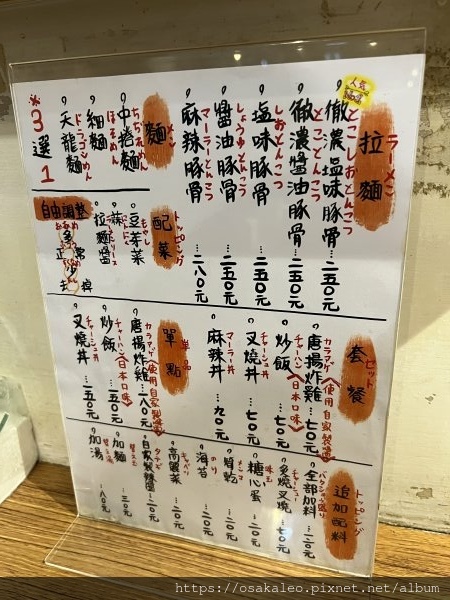 拉麵
ラーメン
人気
徹濃塩味豚骨…二五〇元
とことんしおとんこつ
徹濃醬油豚骨…二五〇元
とことんしょうゆとんこつ
塩味豚骨…二五〇元
しおとんこつ
醬油豚骨…二五〇元
しょうゆとんこつ
麻辣豚骨…二八〇元
マーラーとんこつ
麵
メン
中捲麵
ちぢれめん
細麵
ほそめん
天龍麵
ドラゴンめん
*3選1
配菜
トッピング
豆芽菜
もやし
蒜
拉麵醬
自由調整
多
正常
少
去掉
套餐
セット
唐揚炸雞…七〇元
カラアゲ(使用自家製醬)
炒飯…七〇元
チャーハン(日本口味)
叉燒丼…七〇元
チャーシュー丼
麻辣丼…九〇元
マーラー丼
單點
単品
唐揚炸雞…二〇〇元
カラアゲ(使用自家製醬)
炒飯…一五〇元
チャーハン(日本口味)
叉燒丼…一五〇元
チャーシュー丼
追加配料
トッピング
全部加料…一二〇元
炙燒叉燒…七〇元
チャーシュー
糖心蛋…二〇元
味玉
筍乾…二〇元
メンマ
海苔…二〇元
のり
高麗菜…二〇元
キャベツ
自家製辣醬…二〇元
加麵…三〇元
替え玉
加湯…八〇元
https://osakaleo.pixnet.net/album